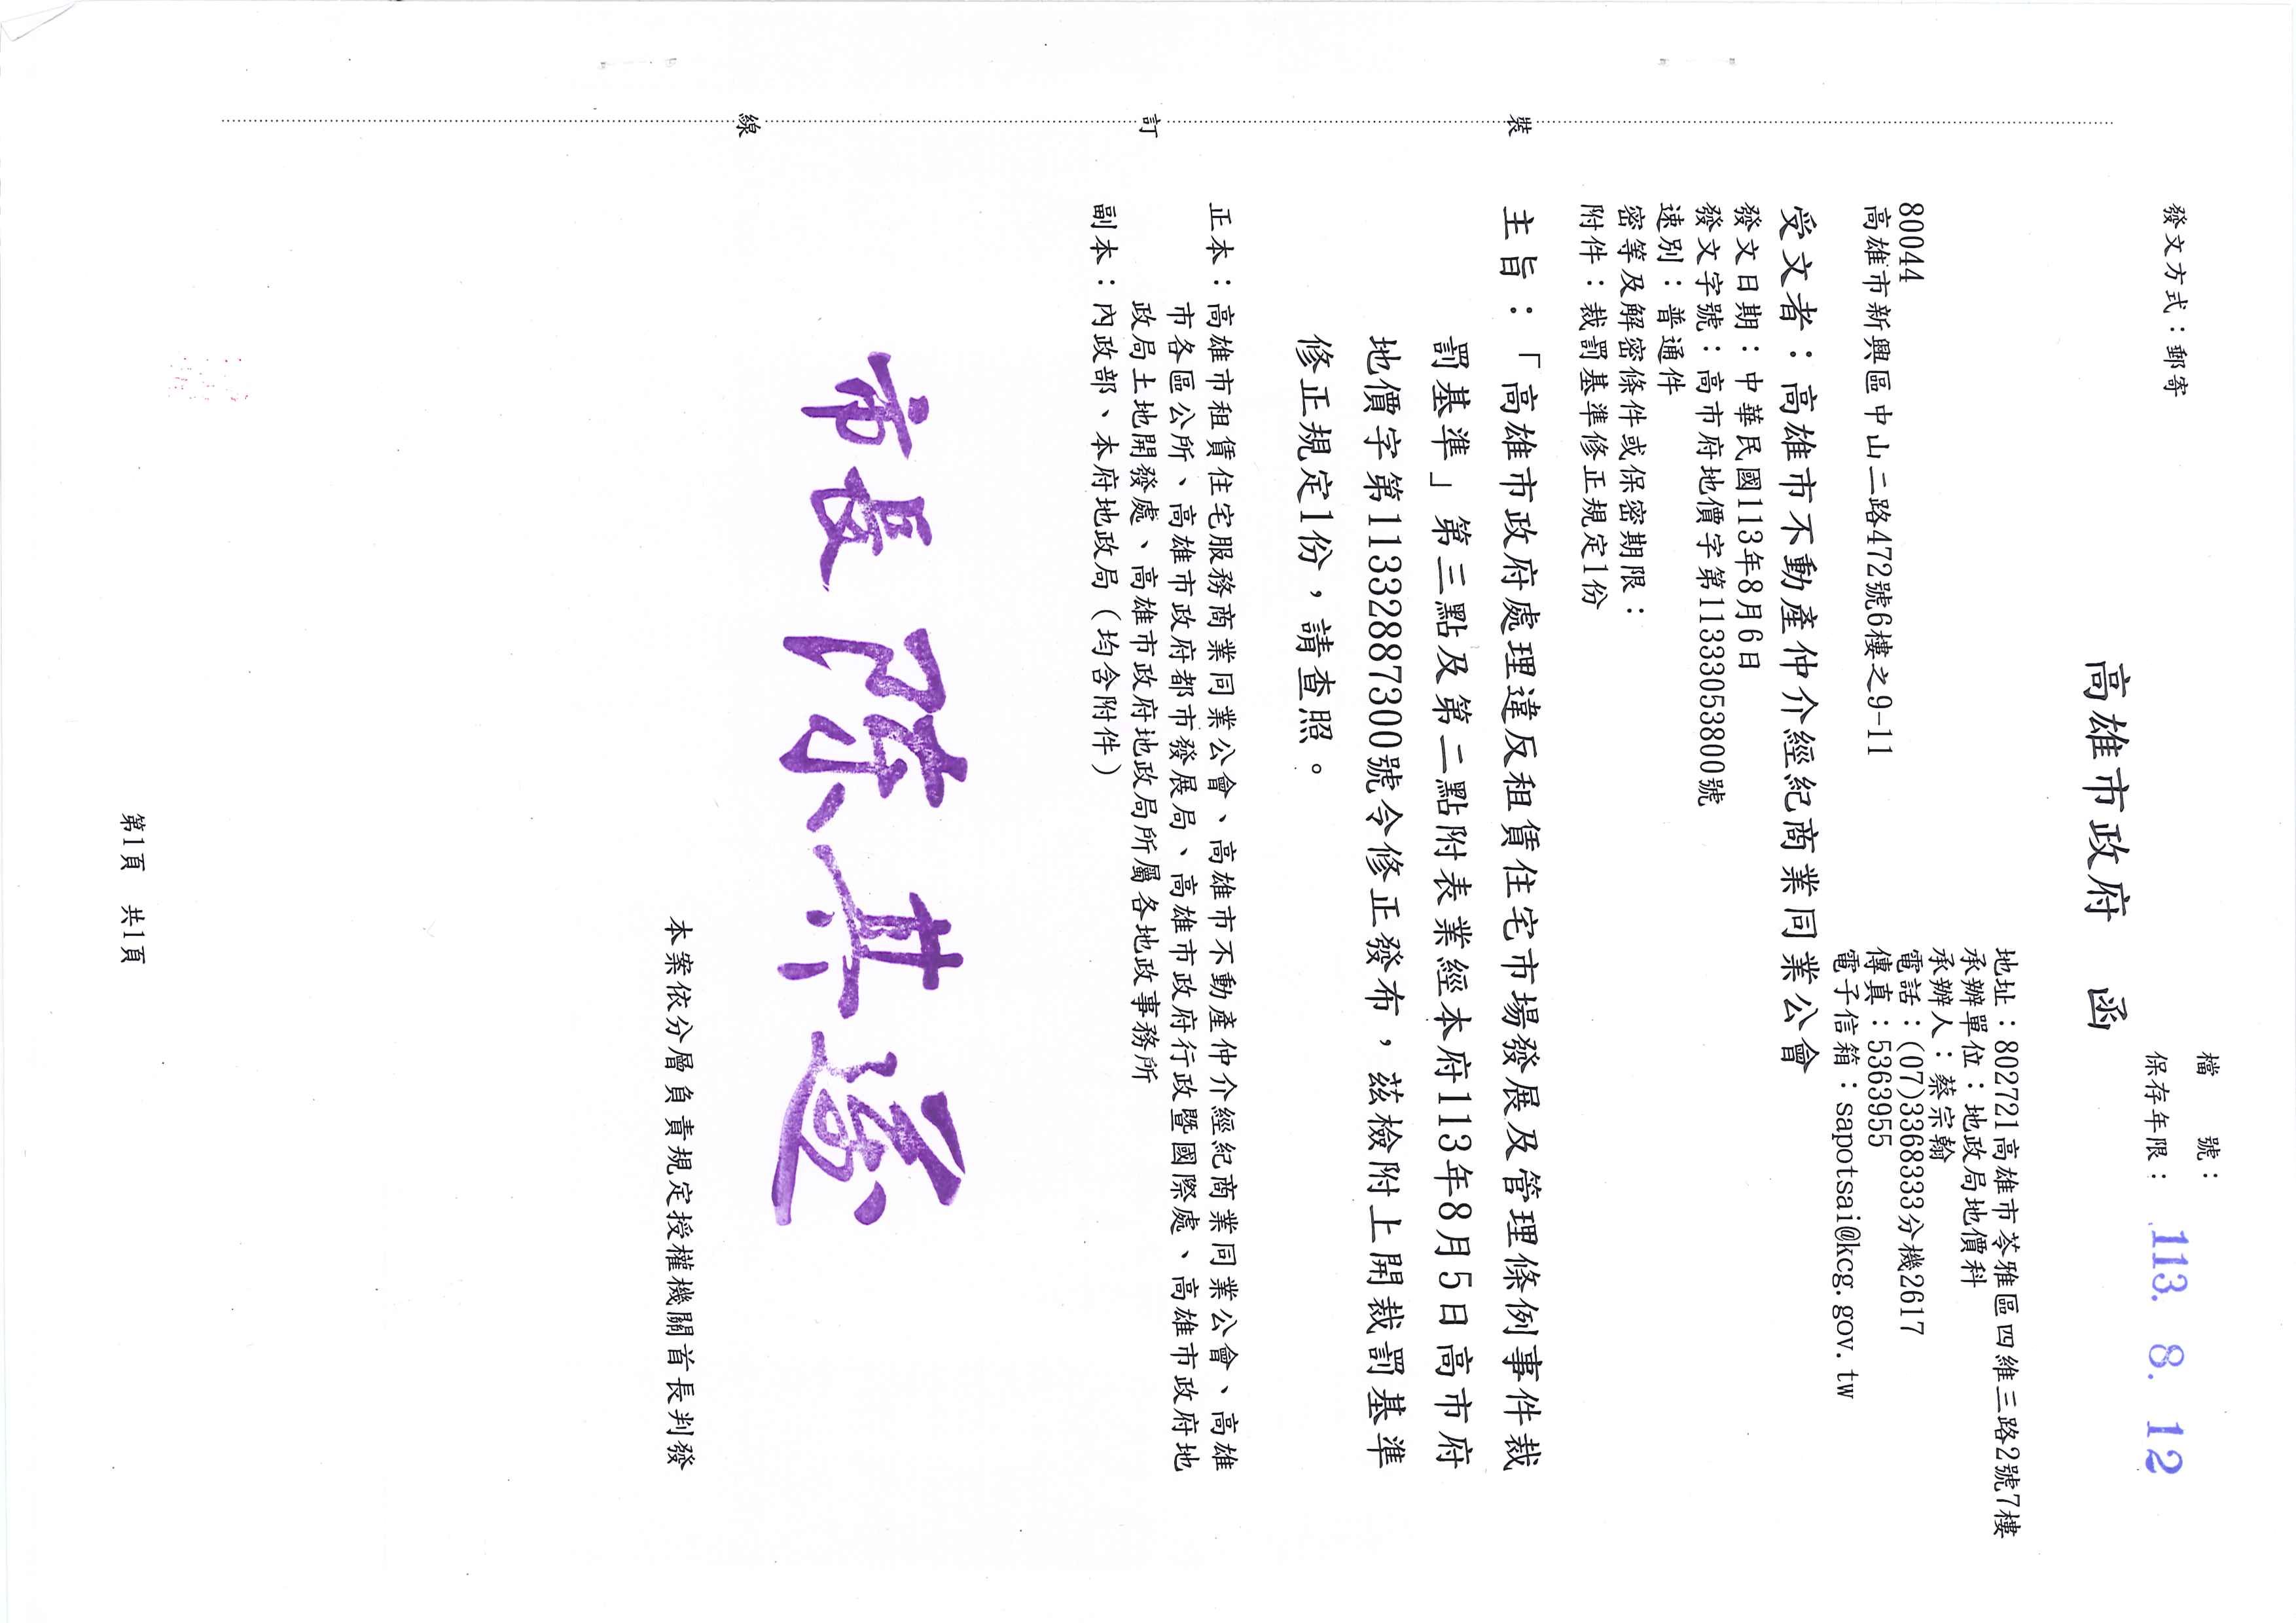 檔　　號：
保存年限：
113. 8. 12
發文方式：郵寄
高雄市政府　函
地址：802721高雄市苓雅區四維三路2號7樓
承辦單位：地政局地價科
承辦人：蔡宗翰
電話：(07)3368333分機2617
傳真：5363955
電子信箱：sapotsai@kcg.gov.tw
80044
高雄市新興區中山二路472號6樓之9-11
受文者：高雄市不動產仲介經紀商業同業公會
發文日期：中華民國113年8月6日
發文字號：高市府地價字第11333053800號
速別：普通件
密等及解密條件或保密期限：
附件：裁罰基準修正規定1份
主旨：「高雄市政府處理違反租賃住宅市場發展及管理條例事件裁
罰基準」第三點及第二點附表業經本府113年8月5日高市府
地價字第11332887300號令修正發布，茲檢附上開裁罰基準
修正規定1份，請查照。
正本：高雄市租賃住宅服務商業同業公會、高雄市不動產仲介經紀商業同業公會、高雄
市各區公所、高雄市政府都市發展局、高雄市政府行政暨國際處、高雄市政府地
政局土地開發處、高雄市政府地政局所屬各地政事務所
副本：內政部、本府地政局（均含附件）
市長 陳其邁
本案依分層負責規定授權機關首長判發
裝
訂
線
第1頁　共1頁